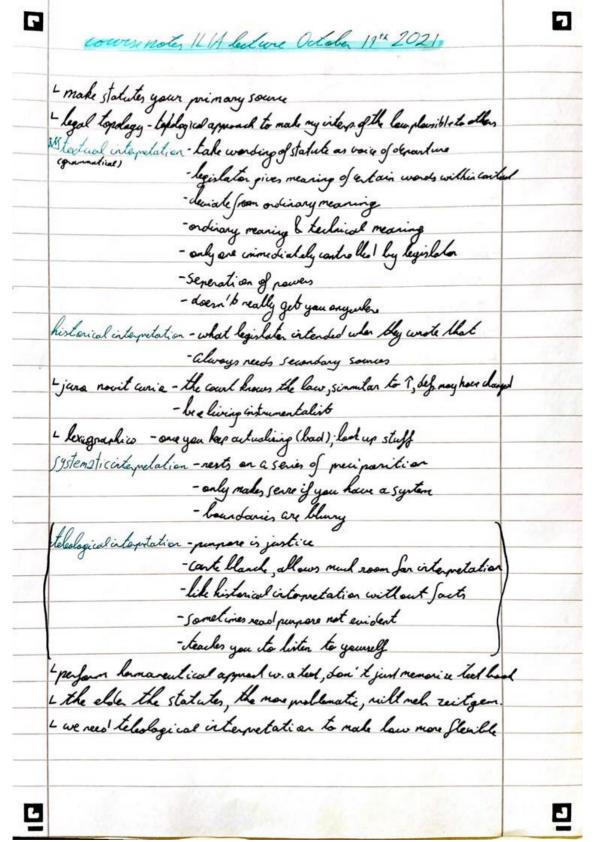 course notes ILIA lecture October 19th 2021
└ make statutes your primary source
└ legal topology - topological approach to make my interp. of the law plausible to others
textual interpretation - take wording of statute as voice of departure
(grammatical)
- legislator gives meaning of certain words within context
- deviate from ordinary meaning
- ordinary meaning & technical meaning
- only one immediately controlled by legislator
- seperation of powers
- doesn't really get you anywhere
historical interpretation - what legislator intended when they wrote that
- always needs secondary sources
└ jura novit curia - the court knows the law, simmilar to ↑, def. may have changed
- be a living instrumentalist
└ - once you keep actualising (bad); look up stuff
systematic interpretation - rests on a series of
- only makes sense if you have a system
- boundaries are blurry
teleological interpretation - purpose is justice
- cart blanch, allows much room for interpretation
- like historical interpretation without facts
- sometimes read purpose not evident
- teaches you to listen to yourself
└ perform approach w. a text, don't just memorize text book
└ the older the statutes, the more problematic,
└ we need teleological interpretation to make law more flexible